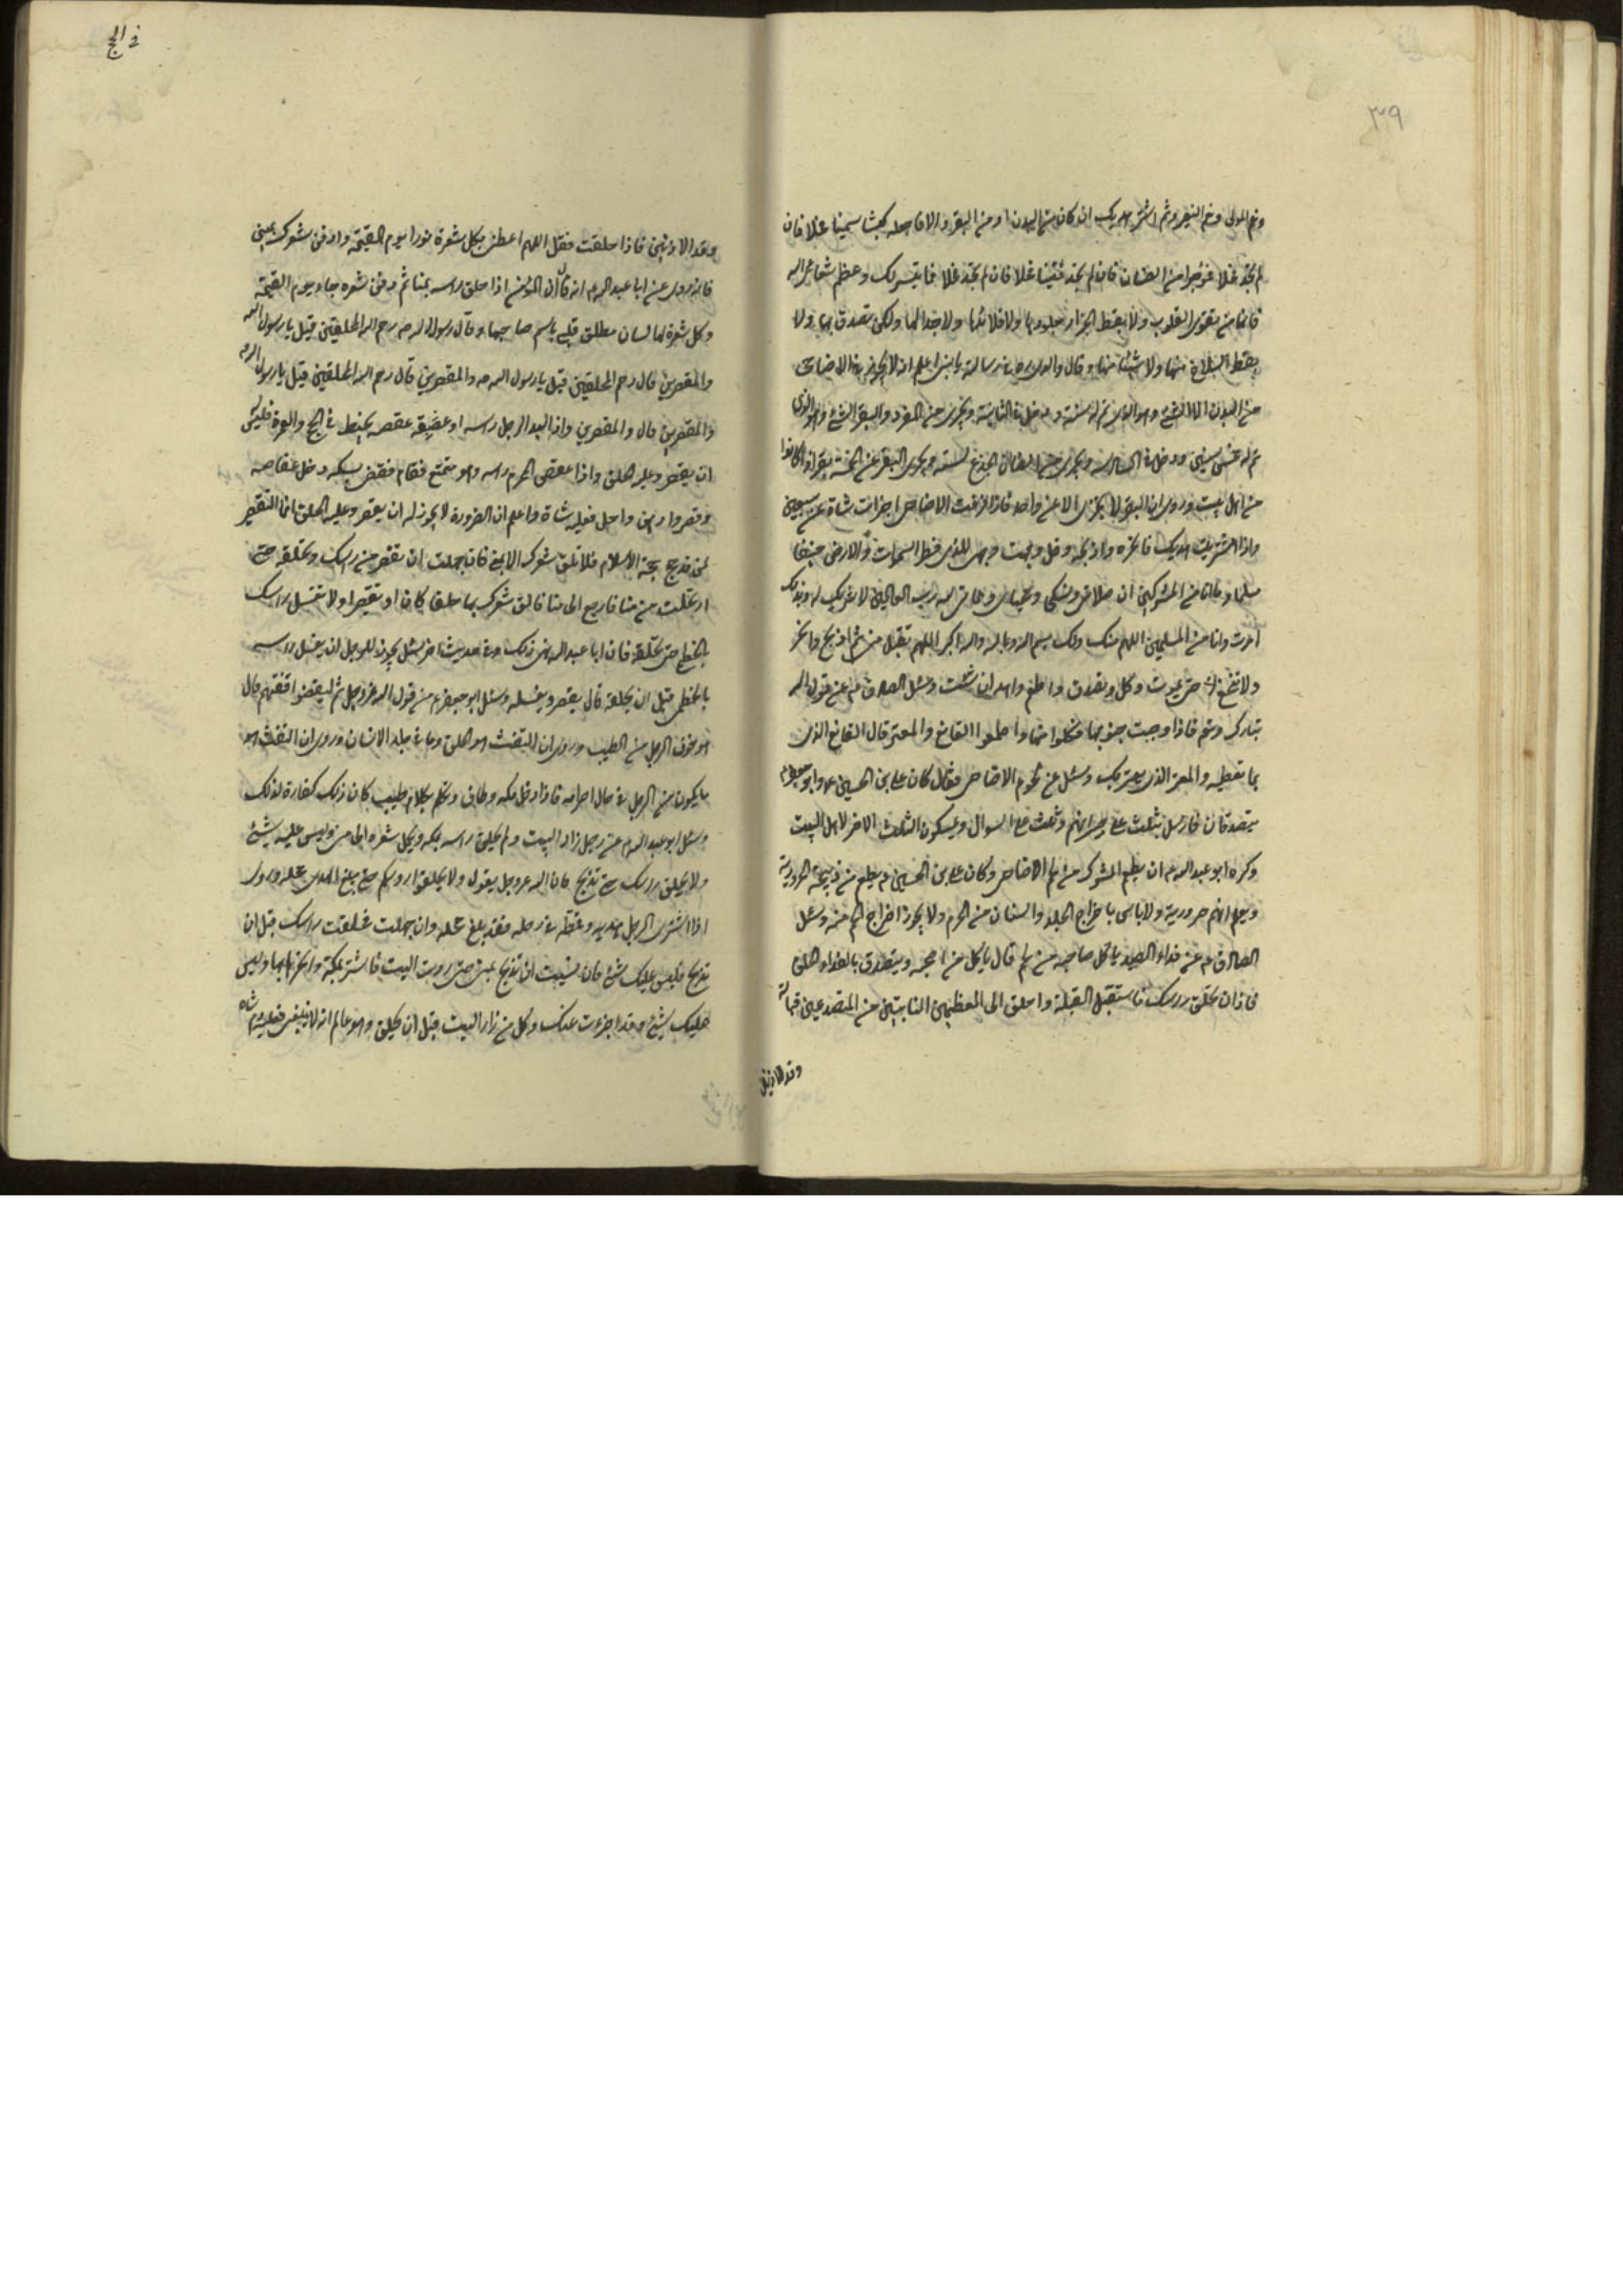 ٣٩
ونعم المولى ونعم النصير ثم اشتر هديك ان كان من البدن او من البقر والا فاجعله كبشا سمينا فحلا فان
لم تجد فحلا فموجوا من الضان فان لم تجد فتيسا فحلا فان لم تجد فحلا فما تيسر لك وعظم شعائر الله
فانها من تقوى القلوب ولا يعط الجزار جلودها ولا قلائدها ولا جلالها ولكن تصدق بها ولا
يعط السلاخ منها ولا شيئا منها وقال والدى ره فى رسالته يا بنى اعلم انه لا يجوز فى الاضاحى
من البدن الا الثنى وهو الذى تم له سنة ودخل فى الثانية ويجزى من المعز والبقر الثنى وهو الذى
تم له خمس سنين ودخل فى السادسة ويجزى من الضان الجذع لسنة ويجزى البقر عن خمسة نفر اذا كانوا
من اهل بيت وروى ان البقرة لا تجزى الا عن واحد فاذا عزت الاضاحى اجزات شاة عن سبعين
واذا اشتريت هديك فانحره واذبحه وقل وجهت وجهى للذى فطر السموات والارض حنيفا
مسلما وما انا من المشركين ان صلاتى ونسكى ومحياى ومماتى لله رب العالمين لا شريك له وبذلك
امرت وانا من المسلمين اللهم منك ولك بسم الله وبالله والله اكبر اللهم تقبل منى ثم اذبح وانحر
ولا تنخع حتى يموت وكل وتصدق واطعم واهد ان شئت وسئل الصادق ع عن قول الله
تبارك وتع فاذا وجبت جنوبها فكلوا منها واطعموا القانع والمعتر قال القانع الذى
بما تعطيه والمعتر الذى يعتريك وسئل عن لحوم الاضاحى فقال كان على بن الحسين ع وابو جعفر ع
يتصدقان بثلث على جيرانهم وثلث على السوال ويمسكون الثلث الاخر لاهل البيت
وكره ابو عبد الله ع ان يطعم المشرك من لحم الاضاحى وكان على بن الحسين ع يطعم من ذبيحة الحرورية
ويعلم انهم حرورية ولا باس باخراج الجلد والسنام من الحرم ولا يجوز اخراج اللحم منه وسئل
الصادق ع عن فداء الصيد ياكل صاحبه من لحم قال ياكل من اضحيته ويتصدق بالفداء الحلق
فاذا ان تحلق راسك فاستقبل القبلة واحلق الى العظمين النابتين من الصدغين قبالة
وتد الاذنين
فى الحج
وتد الاذنين فاذا حلقت فقل اللهم اعطنى بكل شعرة نورا يوم القيمة وادفن شعرك بمنى
فانه روى عن ابا عبد الله ع انه قال ان المؤمن اذا حلق راسه بمنا ثم دفن شعره جاء يوم القيمة
وكل شعرة لها لسان مطلق تلبى باسم صاحبها وقال رسول الله ص رحم الله المحلقين قيل يا رسول الله
والمقصرين قال رحم المحلقين قيل يا رسول الله ص والمقصرين قال رحم الله المحلقين قيل يا رسول الله
والمقصرين قال والمقصرين واذا لبد الرجل راسه او عقصه بخيط فى الحج والعمرة فليس
ان يقصر وعليه الحلق واذا عقص المحرم راسه وهو متمتع فقام فقضى نسكه وحل عقاصه
وقصر وادهن واحل فعليه شاة واعلم ان الصرورة لا يجوز له ان يقصر وعليه الحلق انما التقصير
لمن قد حج حجة الاسلام فلا تلق شعرك الا بمنى فان جهلت ان تقصر من راسك وتحلقه حتى
ارتحلت من منا فارجع الى منا فالق شعرك بها حلقا كان او تقصيرا ولا تغسل راسك
بالخطمى حتى تحلقه فان ابا عبد الله نهى ذلك وفى حديث اخر سئل يجوز للرجل ان يغسل راسه
بالخطمى قبل ان يحلقه قال يقصر ويغسله وسئل ابو جعفر ع من قول الله عز وجل ثم ليقضوا تفثهم قال
هو حفوف الرجل من الطيب وروى ان التفث هو الحلق وما فى جلد الانسان وروى ان التفث هو
ما يكون من الرجل فى حال احرامه فاذا دخل مكه وطاف وتكلم بكلام طيب كان ذلك كفارة لذلك
وسئل ابو عبد الله ع عن رجل زار البيت ولم يحلق راسه بمكه ويحمل شعره الى منى وليس عليه شئ
ولا يحلق راسك حتى تذبح فان الله عز وجل يقول ولا تحلقوا رؤسكم حتى يبلغ الهدى محله وروى
اذا اشترى الرجل هديه وقمطه فى رحله فقد بلغ محله وان جهلت فحلقت راسك قبل ان
تذبح فليس عليك شئ فان نسيت ان تذبح بمنى حتى زرت البيت فاشتر بمكة وانحر بها وليس
عليك شئ وقد اجزءت عنك وكل من زار البيت قبل ان يحلق وهو عالم انه لا ينبغى فعليه دم شاة